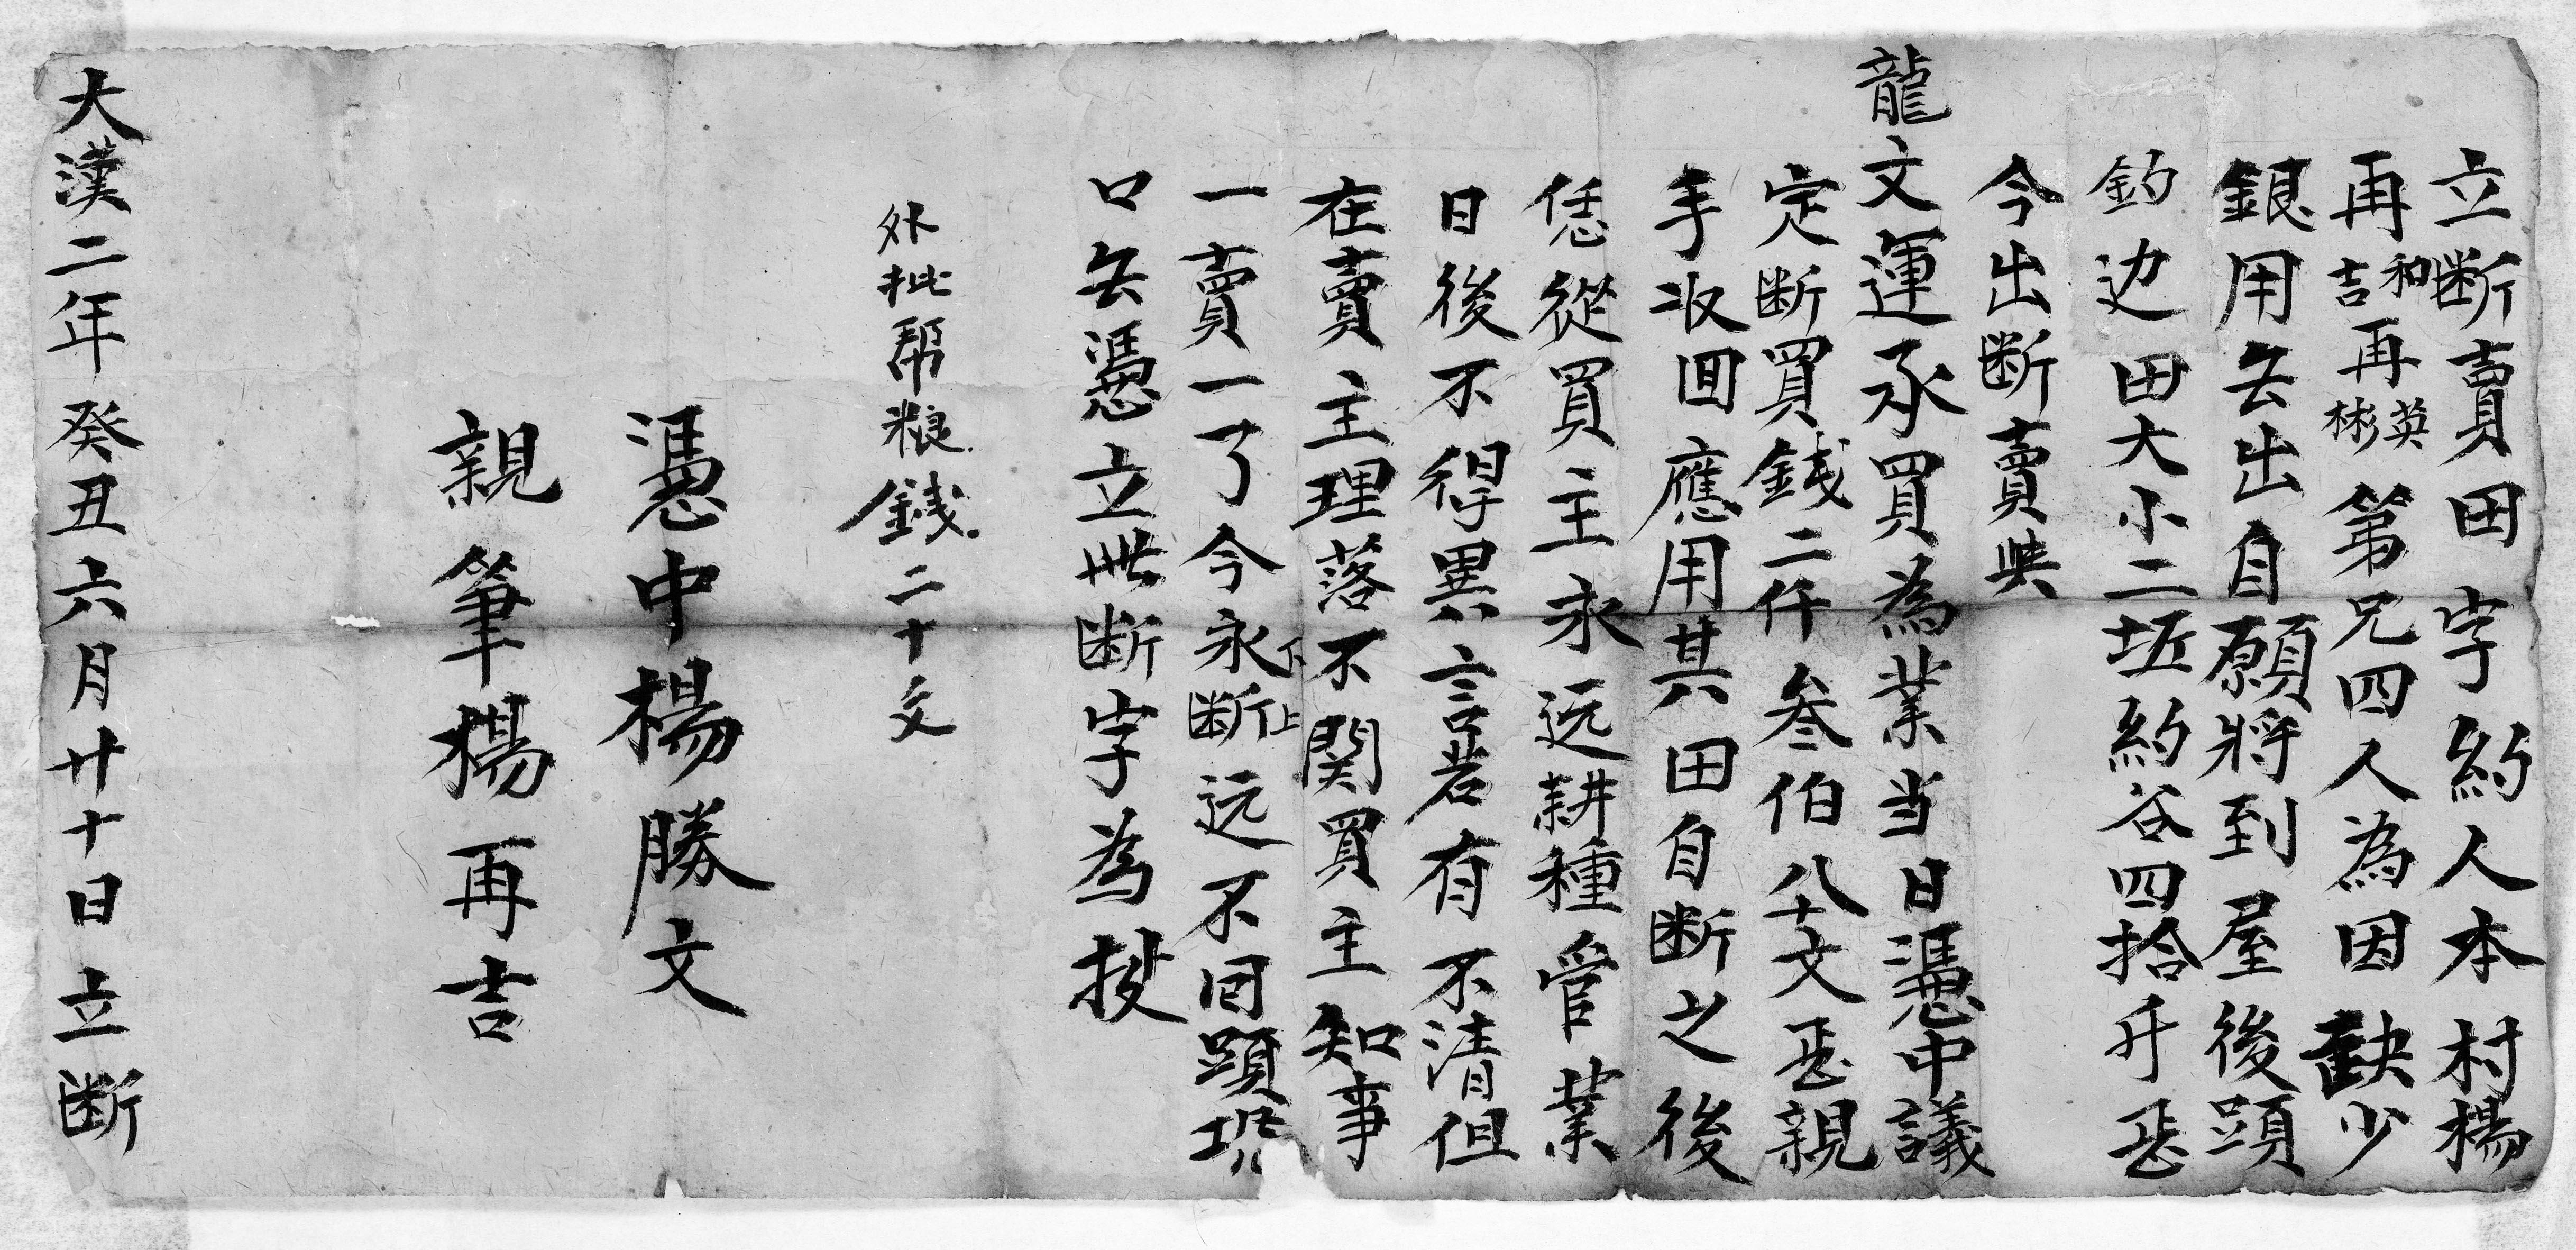 立断賣田字約人本村楊
再和吉再英彬第兄四人為因缺少
銀用无出自願將到屋後頭
鈞边田大小二坵約谷四拾斤正
今出断賣與
龍文運承買為業当日憑中議
定断買銭二仟叁伯八十文正親
手收囬應用其田自断之後
恁從買主永远耕種管業
日後不得異言若有不清但
在賣主理落不関買主知事
一賣一了今永断远不回頭
下上
口无憑立此断字為
外批帮粮銭二十文
憑中楊勝文
親筆楊再吉
大漢二年癸丑六月廿十日立断